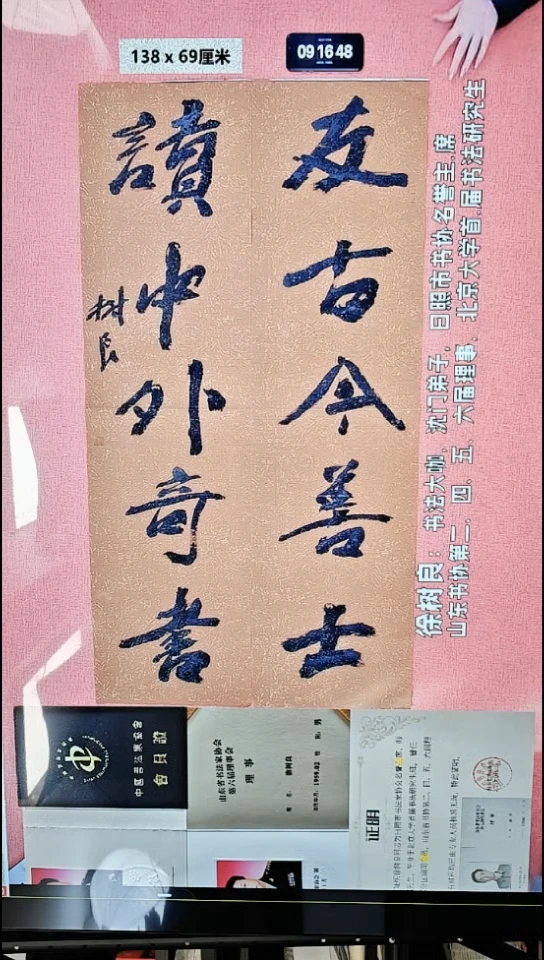 138 x 69厘米
09 16 48
友古今善士
讀中外奇書
树良
徐树良：书法大咖，沈门弟子，日照市书协名誉主席
山东书协第二、四、五、六届理事，北京大学首届书法研究生
中國書法家協會
會員證
山东省书法家协会
第六届理事会
理事
证明